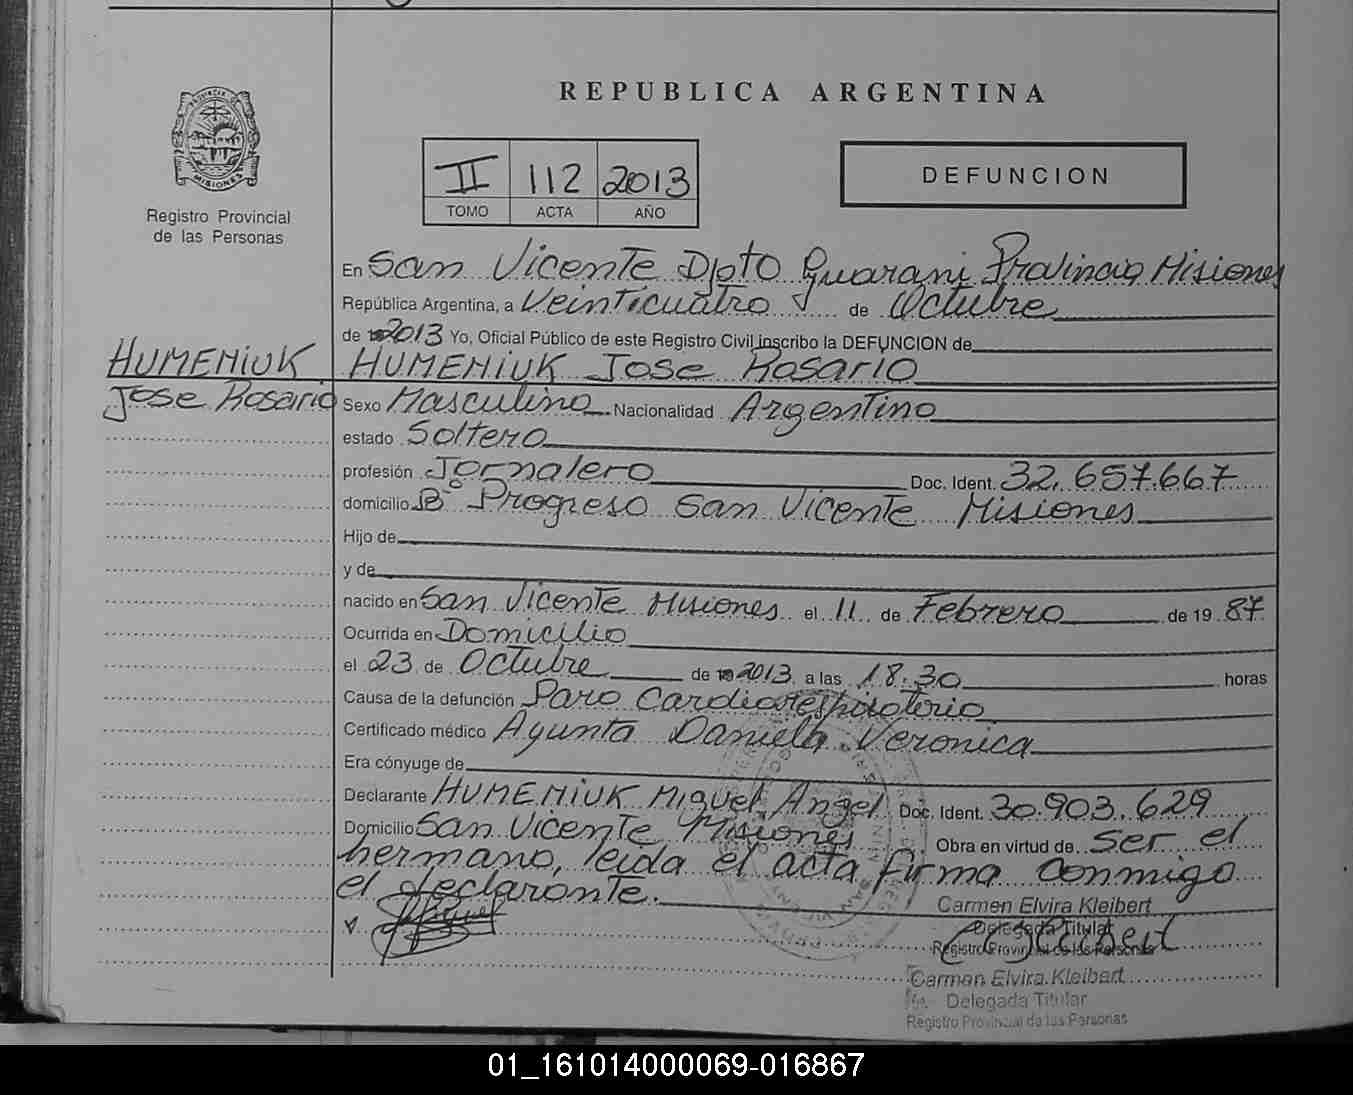 REPUBLICA ARGENTINA
PROVINCIA DE MISIONES
Registro Provincial
de las Personas
II 112 2013
TOMO ACTA AÑO
DEFUNCION
En San Vicente Dpto Guarani Provincia Misiones
República Argentina, a Veinticuatro de Octubre
de 2013 Yo, Oficial Público de este Registro Civil inscribo la DEFUNCION de
HUMENIUK
Jose Rosario
HUMENIUK Jose Rosario
Sexo Masculino Nacionalidad Argentino
estado Soltero
profesión Jornalero Doc. Ident. 32.657.667
domicilio B° Progreso San Vicente Misiones
Hijo de
y de
nacido en San Vicente Misiones el 11 de Febrero de 19 87
Ocurrida en Domicilio
el 23 de Octubre de 2013 a las 18.30 horas
Causa de la defunción Paro Cardiorespiratorio
Certificado médico Ayunta Daniela Veronica
Era cónyuge de
Declarante HUMENIUK Miguel Angel Doc. Ident. 30.903.629
Domicilio San Vicente Misiones Obra en virtud de ser el
hermano, leida el acta firma conmigo
el declarante.
Carmen Elvira Kleibert
Delegada Titular
Registro Provincial de las Personas
Carmen Elvira Kleibert
Delegada Titular
Registro Provincial de las Personas
01_161014000069-016867